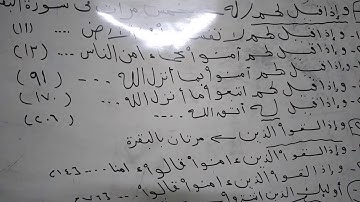 وإذا قيل لهم لا تفسدوا في الأرض .... (١١)
وإذا قيل لهم آمنوا كما ءامن الناس .... (١٣)
وإذا قيل لهم آمنوا بما أنزل الله .... (٩١)
وإذا قيل لهم اتبعوا ما أنزل الله ... (١٧٠)
وإذا قيل له اتق الله .... (٢٠٦)
وإذا لقوا الذين ← مرتان بالبقرة
وإذا لقوا الذين ءامنوا قالوا ءامنا ....
وإذا لقوا الذين ءامنوا قالوا ....
أولئك الذين اشتروا